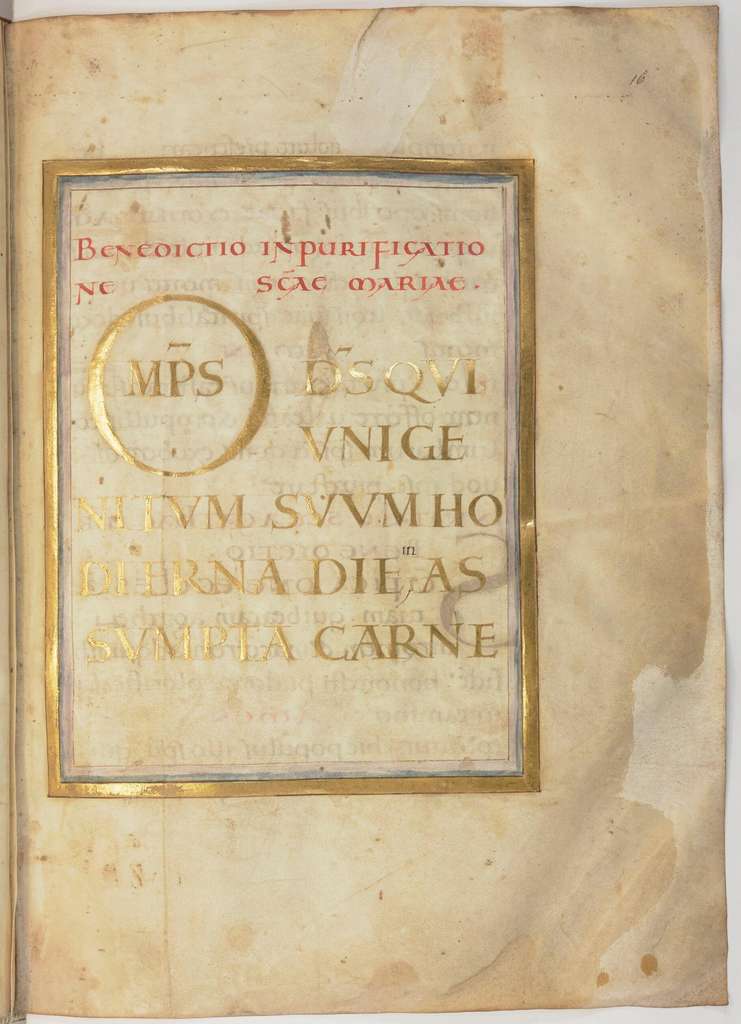 16
BENEDICTIO INPURIFICATIO
NE SC̄AE MARIAE .
OMP̄S D̄S QVI
VNIGE
NITVM SVVM HO
DIERNA DIE, in AS
SVMPTA CARNE